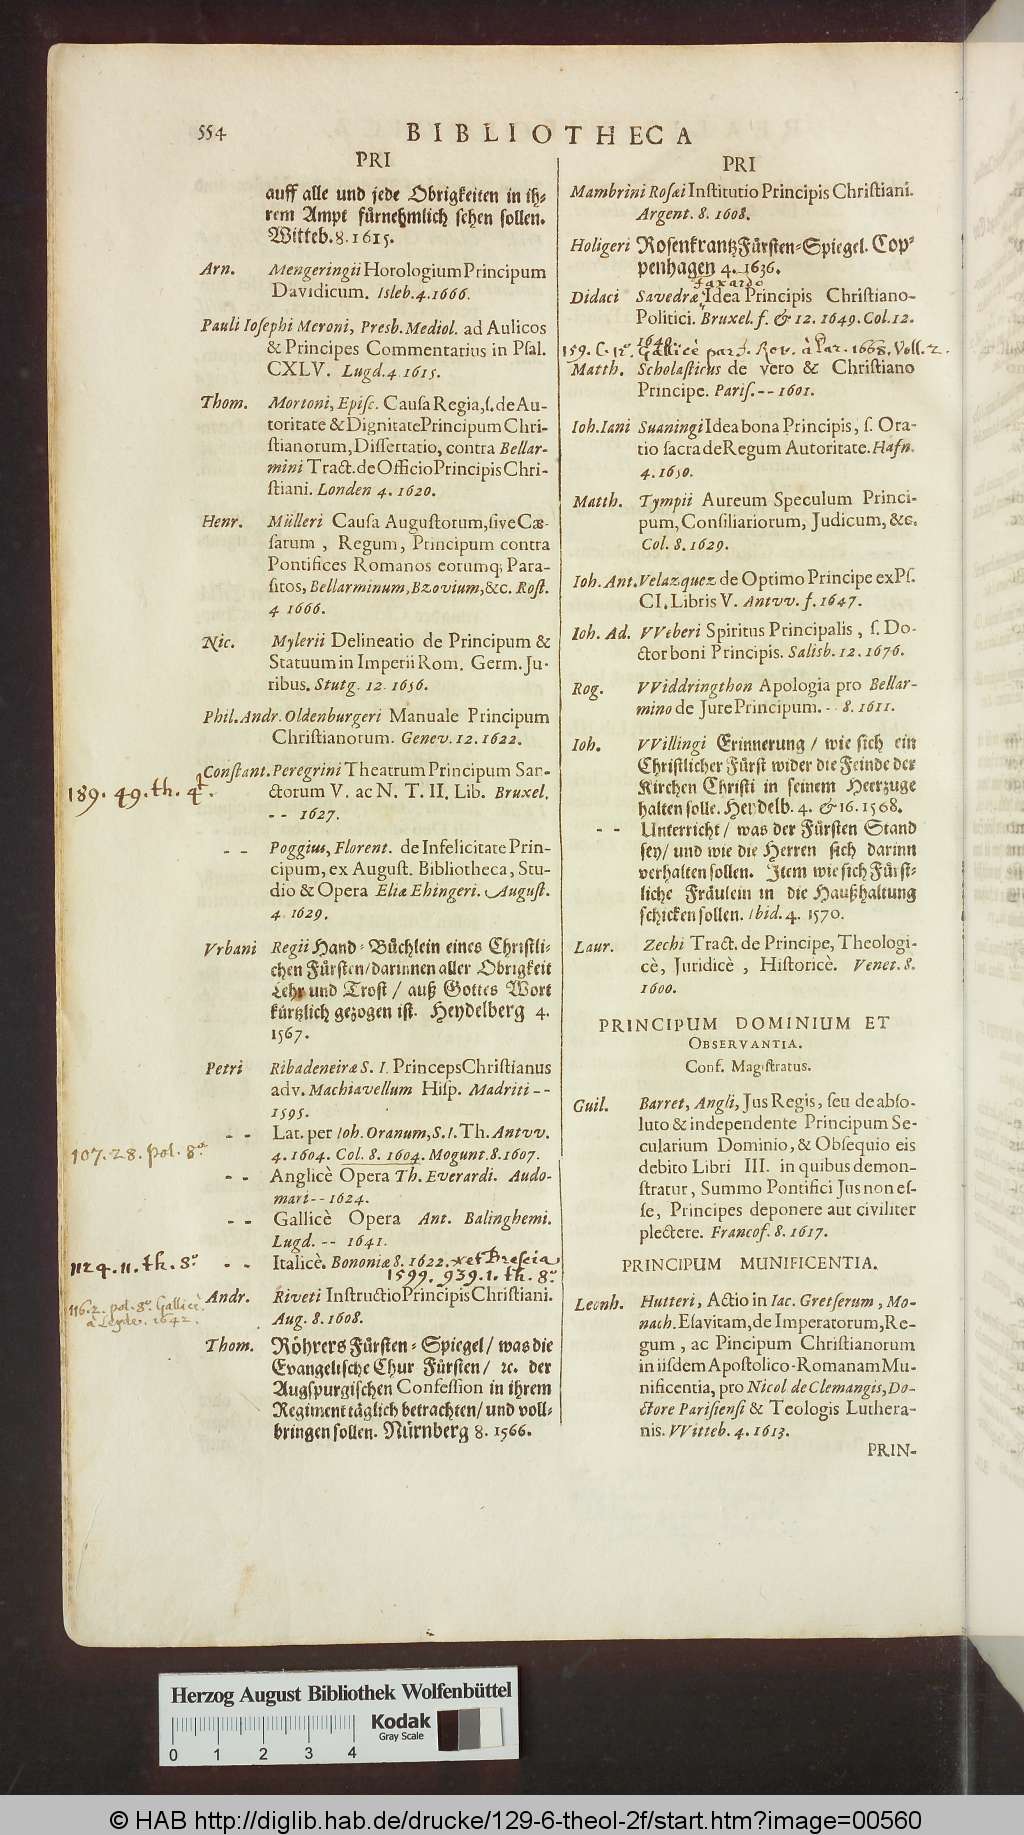 554
BIBLIOTHECA
PRI
auff alle und jede Obrigkeiten in ih⸗
rem Ampt fürnehmlich sehen sollen.
Witteb. 8. 1615.
Arn. Mengeringii Horologium Principum
Davidicum. Isleb. 4. 1666.
Pauli Iosephi Meroni, Presb. Mediol. ad Aulicos
& Principes Commentarius in Psal.
CXLV. Lugd. 4 1615.
Thom. Mortoni, Episc. Causa Regia, s. de Au-
toritate & Dignitate Principum Chri-
stianorum, Dissertatio, contra Bellar-
mini Tract. de Officio Principis Chri-
stiani. Londen 4. 1620.
Henr. Mülleri Causa Augustorum, sive Cæ-
sarum, Regum, Principum contra
Pontifices Romanos eorumq; Para-
sitos, Bellarminum, Bzovium, &c. Rost.
4 1666.
Nic. Mylerii Delineatio de Principum &
Statuum in Imperii Rom. Germ. Ju-
ribus. Stutg. 12. 1656.
Phil. Andr. Oldenburgeri Manuale Principum
Christianorum. Genev. 12. 1622.
Constant. Peregrini Theatrum Principum San-
189. 49. th. 4º. ctorum V. ac N. T. II. Lib. Bruxel.
-- 1627.
-- Poggius, Florent. de Infelicitate Prin-
cipum, ex August. Bibliotheca, Stu-
dio & Opera Eliæ Ehingeri. August.
4. 1629.
Vrbani Regii Hand⸗Büchlein eines Christli⸗
chen Fürsten/ darinnen aller Obrigkeit
Lehr und Trost / auß Gottes Wort
kürtzlich gezogen ist. Heydelberg 4.
1567.
Petri Ribadeneiræ S. I. Princeps Christianus
adv. Machiavellum Hisp. Madriti --
1595.
-- Lat. per Ioh. Oranum, S. I. Th. Antvv.
107. 28. pol. 8º 4. 1604. Col. 8. 1604. Mogunt. 8. 1607.
-- Anglicè Opera Th. Everardi. Audo-
mari -- 1624.
-- Gallicè Opera Ant. Balinghemi.
Lugd. -- 1641.
1124. 11. th. 8º -- Italicè. Bononiæ 8. 1622. et Brescia
1599. 939. 1. th. 8º.
116. 2. pol. 8º. Gallicè
à Leyde. 1642.
Andr. Riveti Instructio Principis Christiani.
Aug. 8. 1608.
Thom. Röhrers Fürsten⸗Spiegel/ was die
Evangelische Chur Fürsten/ ꝛc. der
Augspurgischen Confession in ihrem
Regiment täglich betrachten/ und voll⸗
bringen sollen. Nürnberg 8. 1566.
PRI
Mambrini Rosæi Institutio Principis Christiani.
Argent. 8. 1608.
Holigeri Rosenkrantz Fürsten⸗Spiegel. Cop⸗
penhagen 4. 1636.
Faxardo
Didaci Savedræ, Idea Principis Christiano-
Politici. Bruxel. f. & 12. 1649. Col. 12.
1649.
159. C. 12º. Gallicè par J. Rou. à Par. 1668. Voll. 2.
Matth. Scholasticus de vero & Christiano
Principe. Paris. -- 1601.
Ioh. Iani Suaningi Idea bona Principis, s. Ora-
tio sacra de Regum Autoritate. Hafn.
4. 1650.
Matth. Tympii Aureum Speculum Princi-
pum, Consiliariorum, Judicum, &c.
Col. 8. 1629.
Ioh. Ant. Velazquez de Optimo Principe ex Ps.
CI. Libris V. Antvv. f. 1647.
Ioh. Ad. VVeberi Spiritus Principalis, s. Do-
ctor boni Principis. Salisb. 12. 1676.
Rog. VViddringthon Apologia pro Bellar-
mino de Jure Principum. -- 8. 1611.
Ioh. VVillingi Erinnerung / wie sich ein
Christlicher Fürst wider die Feinde der
Kirchen Christi in seinem Heerzuge
halten solle. Heydelb. 4. & 16. 1568.
-- Unterricht/ was der Fürsten Stand
sey/ und wie die Herren sich darinn
verhalten sollen. Item wie sich Fürst⸗
liche Fräulein in die Haußhaltung
schicken sollen. Ibid. 4. 1570.
Laur. Zechi Tract. de Principe, Theologi-
cè, Juridicè, Historicè. Venet. 8.
1600.
PRINCIPUM DOMINIUM ET
OBSERVANTIA.
Conf. Magistratus.
Guil. Barret, Angli, Jus Regis, seu de abso-
luto & independente Principum Se-
cularium Dominio, & Obsequio eis
debito Libri III. in quibus demon-
stratur, Summo Pontifici Jus non es-
se, Principes deponere aut civiliter
plectere. Francof. 8. 1617.
PRINCIPUM MUNIFICENTIA.
Leonh. Hutteri, Actio in Iac. Gretserum, Mo-
nach. Esavitam, de Imperatorum, Re-
gum, ac Pincipum Christianorum
in iisdem Apostolico-Romanam Mu-
nificentia, pro Nicol de Clemangis, Do-
ctore Parisiensi & Teologis Luthera-
nis. VVitteb. 4. 1613.
PRIN-
Herzog August Bibliothek Wolfenbüttel
Kodak
Gray Scale
0 1 2 3 4
© HAB http://diglib.hab.de/drucke/129-6-theol-2f/start.htm?image=00560